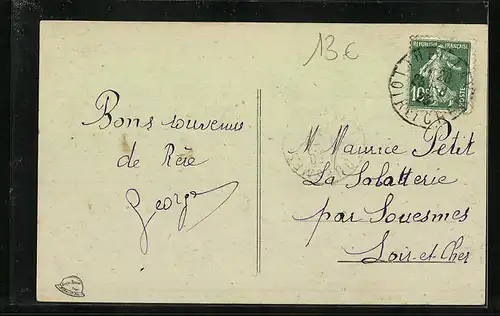 13€
REPUBLIQUE FRANÇAISE
10c
POSTES
Bons souvenirs
de Rère
George
M Maurice Petit
La Salatterie
par Souesmes
Loir-et-Cher